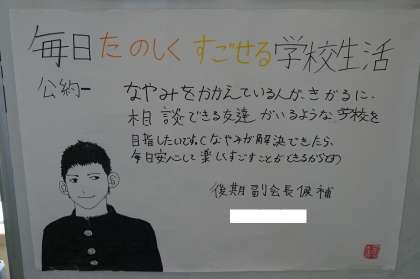 毎日たのしくすごせる学校生活
公約一
なやみをかかえている人が、きがるに、
相談できる友達がいるような学校を
目指したいです。なやみが解決できたら、
毎日安心して楽しくすごすことができるからです。
後期副会長候補